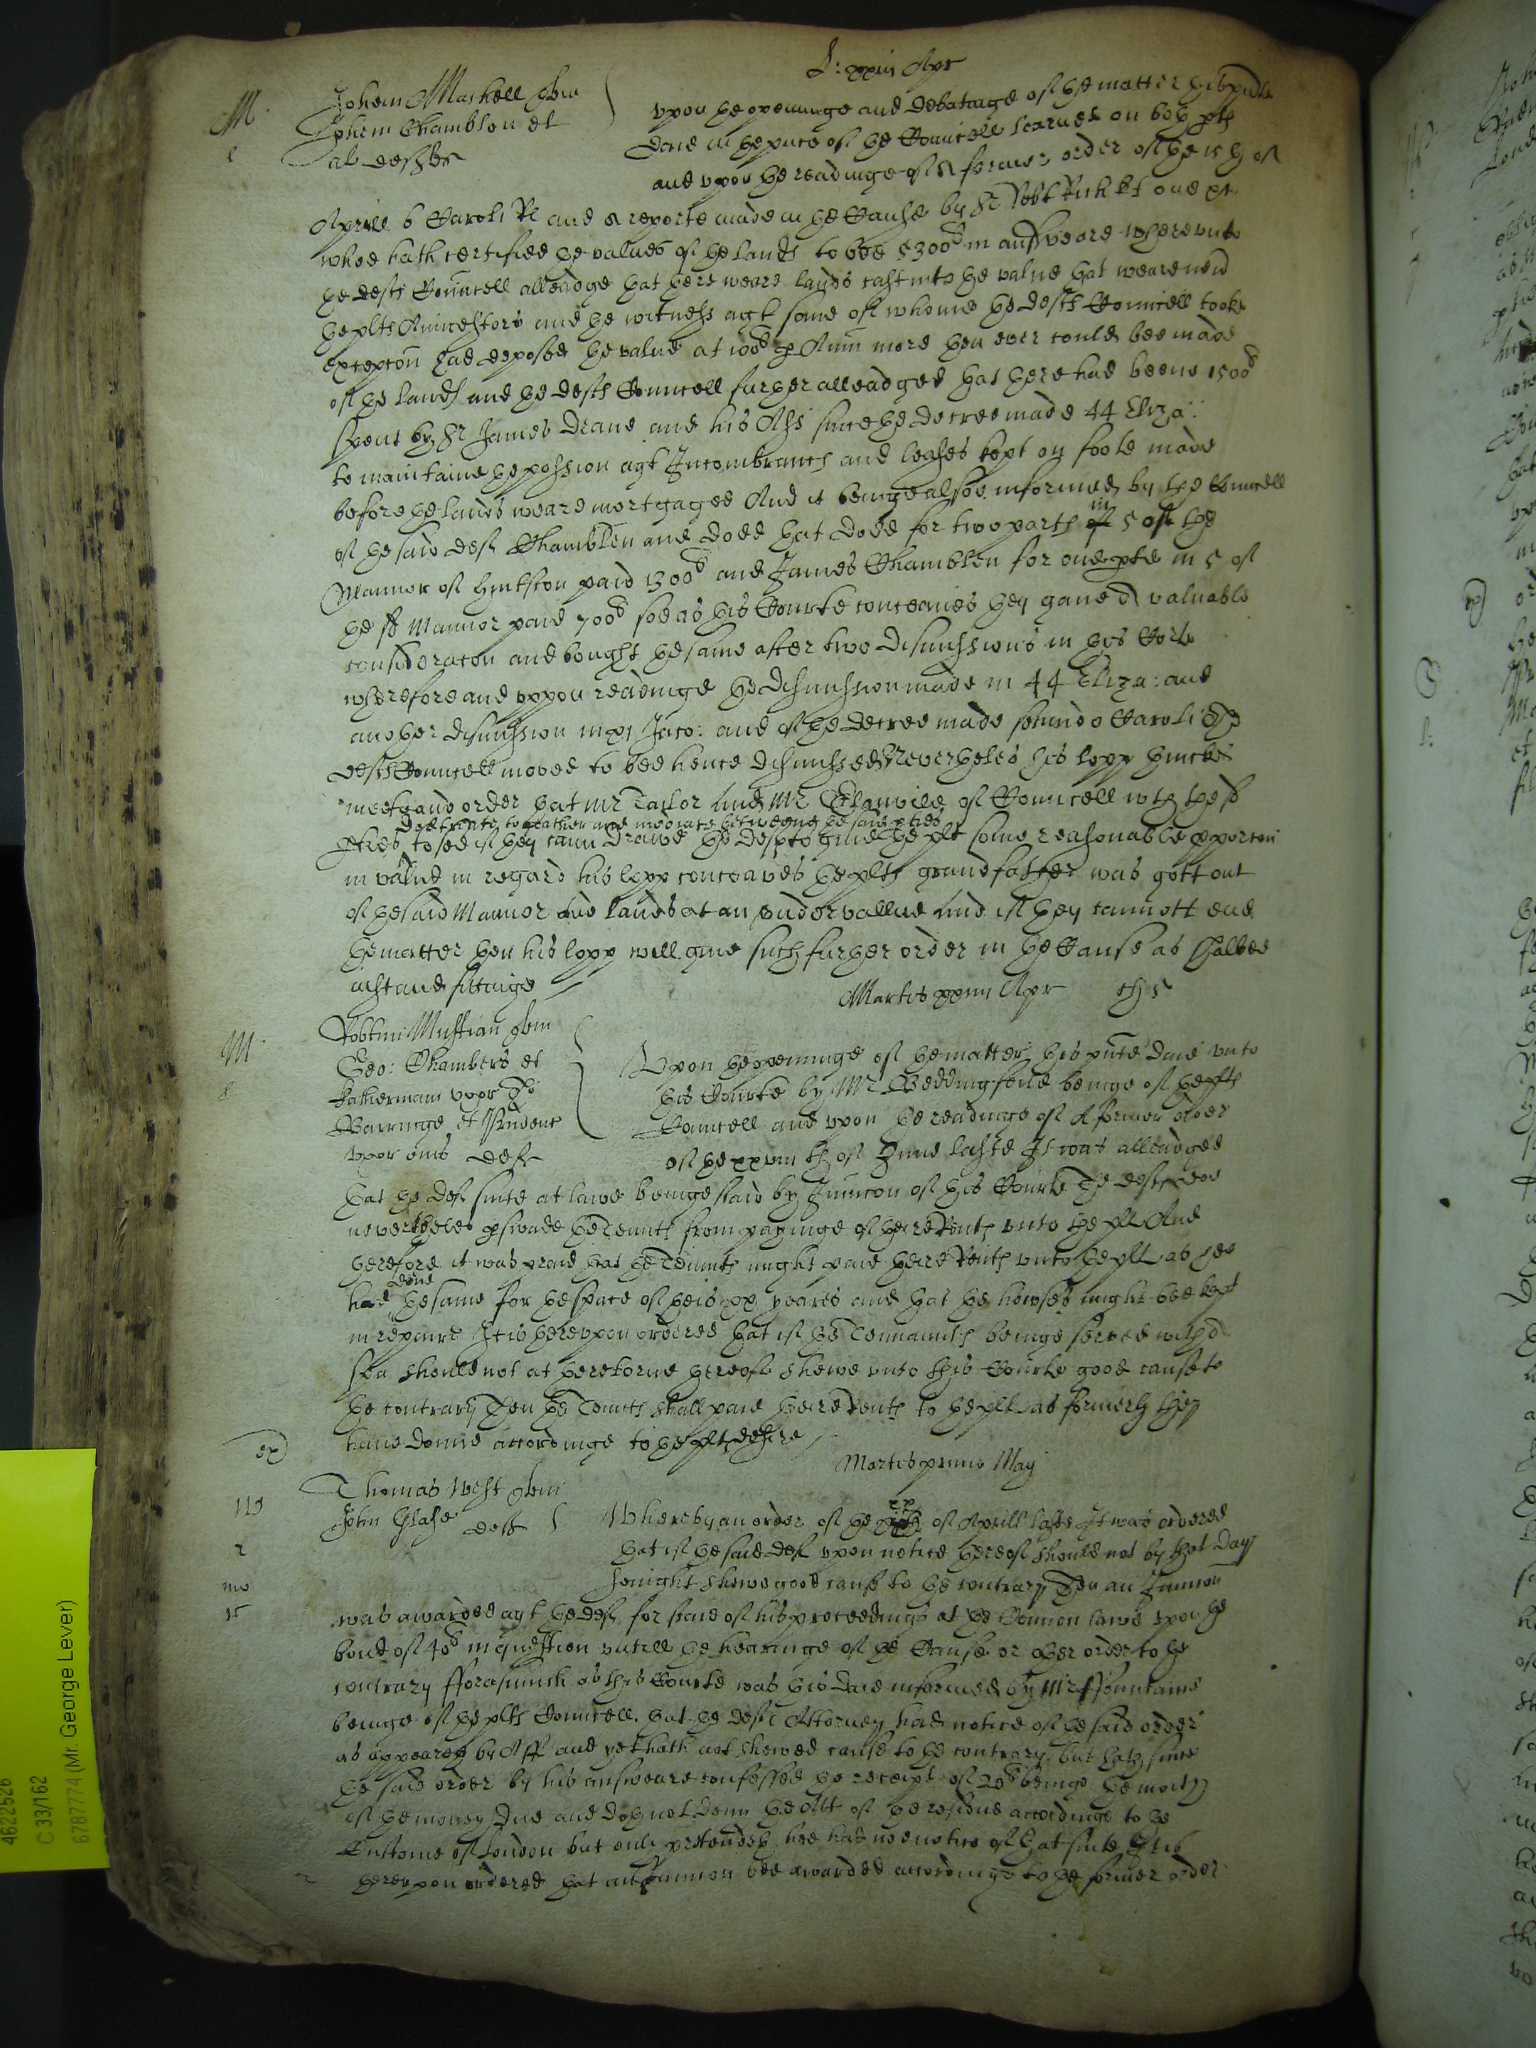 L: xxiij Apr
M Johem Maskell quer
Johem Chamblen et
al defts
upon the openinge and debatinge of the matter this pnte
daie in the pnce of the Councell learned on both pts
and upon the readinge of a former order of the 15th of
Aprill 6 Caroli Rs and a reporte made in the Cause by Sr Robt Rich kt one etc
whoe hath certified the values of the lands to bee 5300li in and yeare whereunto
the defts Councell alleadge that there weare lands cast into the value that weare
the plts Auncestors and the witness agt some of whome the defts Councell tooke
excepcon had deposed the value at 100li p Ann more then ever could bee made
of the lands and the defts Councell further alleadged that there had beene 1500li
spent by Sr James Deane and his Ass since the decree made 44 Eliza:
to maintaine the possion agt Incombrances and leases kept on foote made
before the lands weare mortgaged And it beinge alsoe informed by the Councell
of the said deft Chamblen and doee that doee for two parts in 5 of the
Mannor of paid 1300li and James Chamblen for one pte in 5 of
the sd Mannor paid 700li soe as this Courte conceaves they gave a valuable
consideracon and bought the same after two dismissions in this Corte
wherefore and uppon readinge the dismission made in 44 Eliza: and
another dismission in xj Jaco: and of the decree made secundo Caroli the
defts Councell moved to bee hence dismissed Nevertheles his lopp thincks
meete and order that Mr Tailor and Mr Glanvile of Councell with the sd
doe treate together and mediate betweene the said pties
pties to see if they cann drawe the deft to give the plt some reasonable proporcon
in value in regard his lopp conceaves the plts grandfather was gott out
of the said Mannor and lands at an undervallue And if they cannott end
the matter then his lopp will give such further order in the Cause as shalbee
iust and fittinge
Martis xxiiij Apr
M Robtm Mustian quer
Geo: Chambers et
Katherinam uxor
et
uxor eius defts
Upon the openinge of the matter this pnte daie unto
this Courte by Mr Beddingfeild beinge of the plts
Councell and upon the readinge of A former order
of the xxviij th of June laste It was alleadged
that the defts suite at lawe beinge staid by Iniuncon of this Courte The defts doe
nevertheles pswade the Tennts from payinge of their Rents unto the plt And
therefore it was praid that the Tennts might paie their Rents unto the plt as hee
done
had the same for the space of theis xx yeares and that the howses might bee kept
in repaire It is thereuppon ordered that if the Tennaunts beinge served with a
spa should not at the retorne thereof shewe unto this Courte good cause to
the contrary Then the Tennts shall paie their Rents to the plt as formerly they
ex have donne accordinge to the plts desire
Martis primo May
Thomas West quer
John Glase deft
Whereby an order of the xx of Aprill laste It was ordered
that if the said deft upon notice thereof should not by that day
senight shewe good cause to the contrary Then an Iniuncon
was awarded agt the deft for staie of his proceedings at the Comon lawe upon the
bond of 40li in question untill the hearinge of the Cause or other order to the
contrary fforasmuch as this Courte was this daie informed by Mr ffountaine
beinge of the plts Councell that the defts Attorney had notice of the said order
as appeareth by Aff and yet hath not shewed cause to the contrary but hath since
the said order by his answeare confessed the receipt of 20li beinge the moity
of the money due and doth not deny the of the residue accordinge to the
Custome of London but only pretendeth hee had noe notice of that suite It is
thereupon ordered that an Iniuncon bee awarded accordinge to the former order
4622526
C 33/162
6787774 (Mr. George Lever)